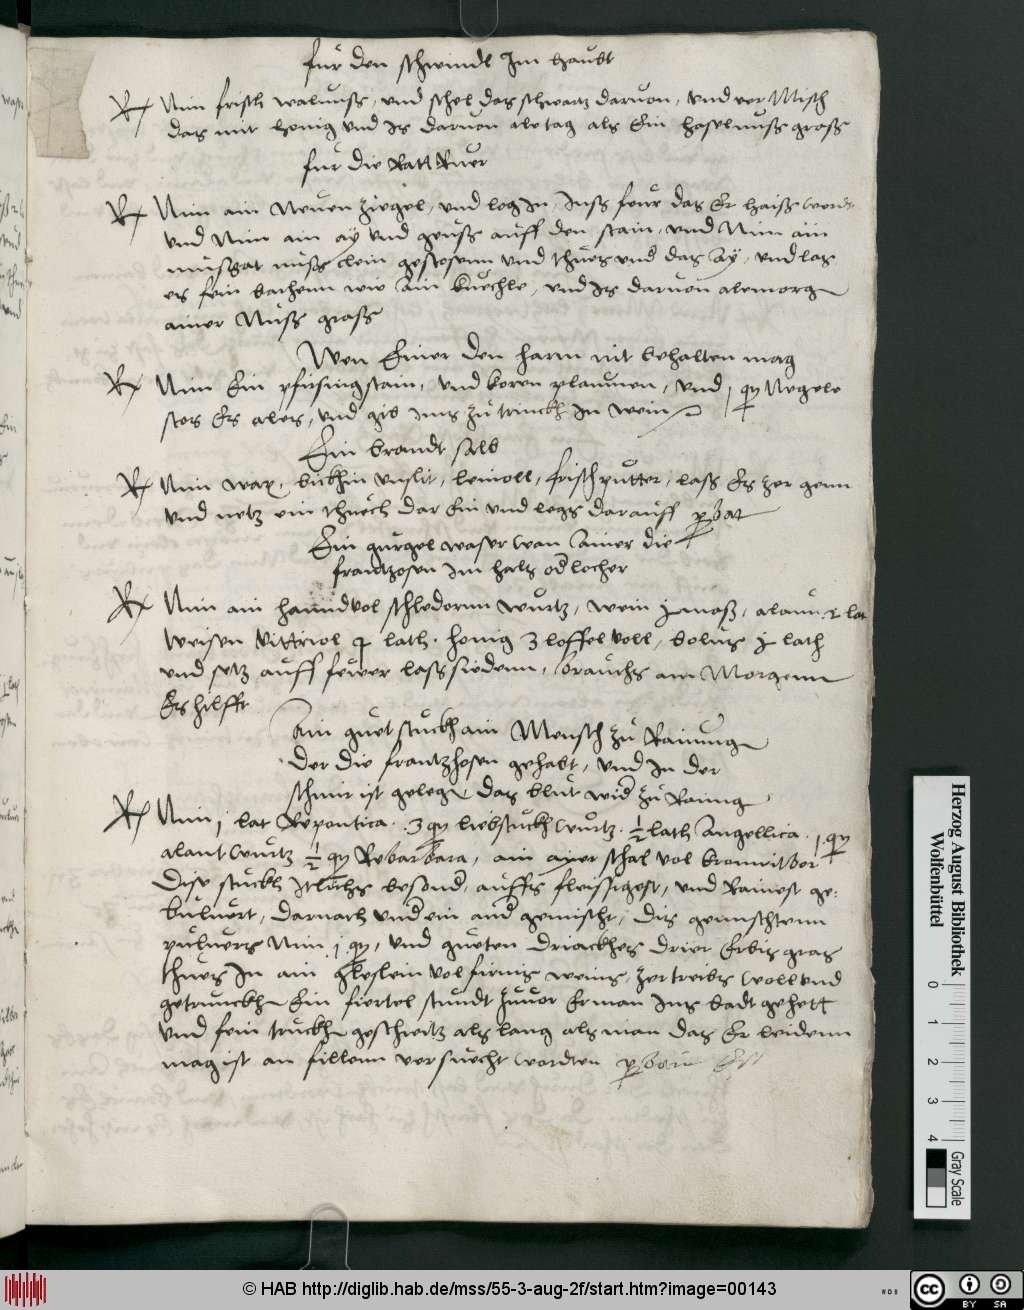 für den schwindl Im haubt
Rx Nim frisch walnuss, und schel das schwartz daruon, und ver Misch
das mit honig und Is daruon aletag als Ein haselnuss gross
für die Rott Ruer
Rx Nim ain Neuen ziegel, und leg In, Inss feur das Er haiss werdt
und Nim ain ay und geuss auff den stain, und Nim ain
musgat nuss clein gestosenn und thues und das Ay, und las
es fein bachenn wie Ain kuechle, und Is daruon alemorgn
ainer Nuss gross
Wen Einer den harm nit behalten mag
Rx Nim Ein pfirsingstain, und keren plaumen, und 1 qu Negele
stos Es ales, und gib ims zu trinckh In wein
Ein brandt salb
Rx Nim wax, bückhin unslit, leinoll, frisch putter, lass Es zer genn
und netz ein thuech dar Ein und legs darauff probat
Ein gurgel waser wan Ainer die
frantzosen im hals od locher
Rx Nim ain handuol schledornn wurtz, wein j moss, alaun 2 lot
weisen vittriol j lath, honig 3 loffel voll, bolus j lath
und setz auff feuer lass siedenn, brauchs am Morgenn
Es hilfft
Ain guet stuckh ain Mensch zu Rainign
der die frantzhosen gehabt, und In der
schmir ist gelegn, das blut wid zu Rainig
Rx Nim 1 lot Repontica, 3 qu liebstuckh wurtz, ½ lath Angellica, 1 qu
alant wurtz ½ qu Rebarbara, ain ayer schal vol kronwitbor
Dise stuckh itlichs besond, auffs fleissigest, und Rainest ge:
buluert, darnach und ein and gemischt, dis gemischtenn
puluers Nim 1 qu, und gueten driackhes drier Erbis gros
thues In ain gleslein vol firnis weins, zertreibs woll und
getrunckhn Ein fiertel stundt zuuor Er man Ins badt gehett
und fein truckhn geschwitz als lang als man das Er leidenn
mag ist an fillenn versuecht wordten probatum Est
Herzog August Bibliothek
Wolfenbüttel
0 1 2 3 4
Gray Scale
© HAB http://diglib.hab.de/mss/55-3-aug-2f/start.htm?image=00143
cc BY SA